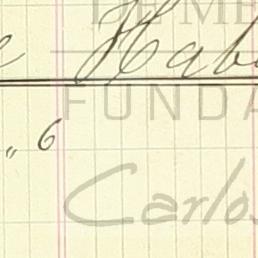 DE ME
e Habe
FUNDA
„ 6
Carlos